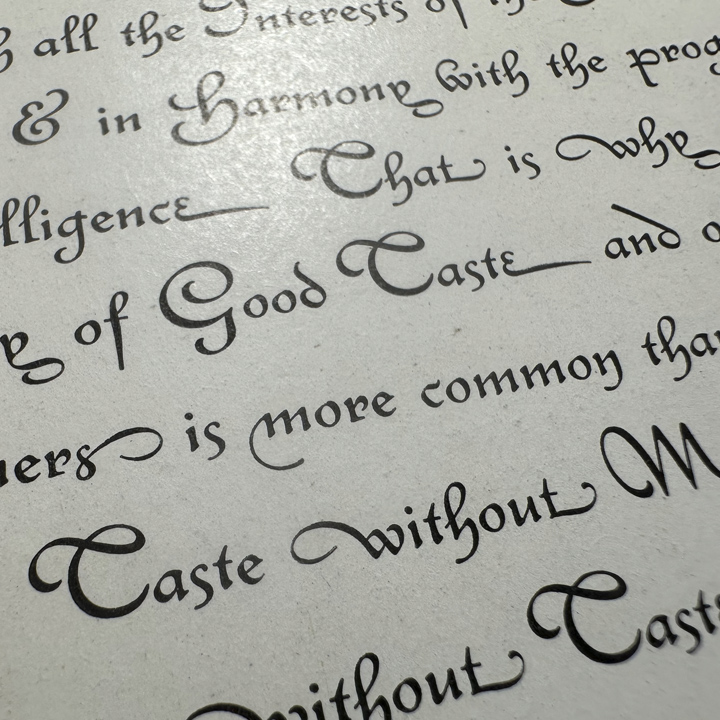 all the Interests of
& in Harmony with the
That is why
of Good Taste and
is more common than
Taste without
without Taste